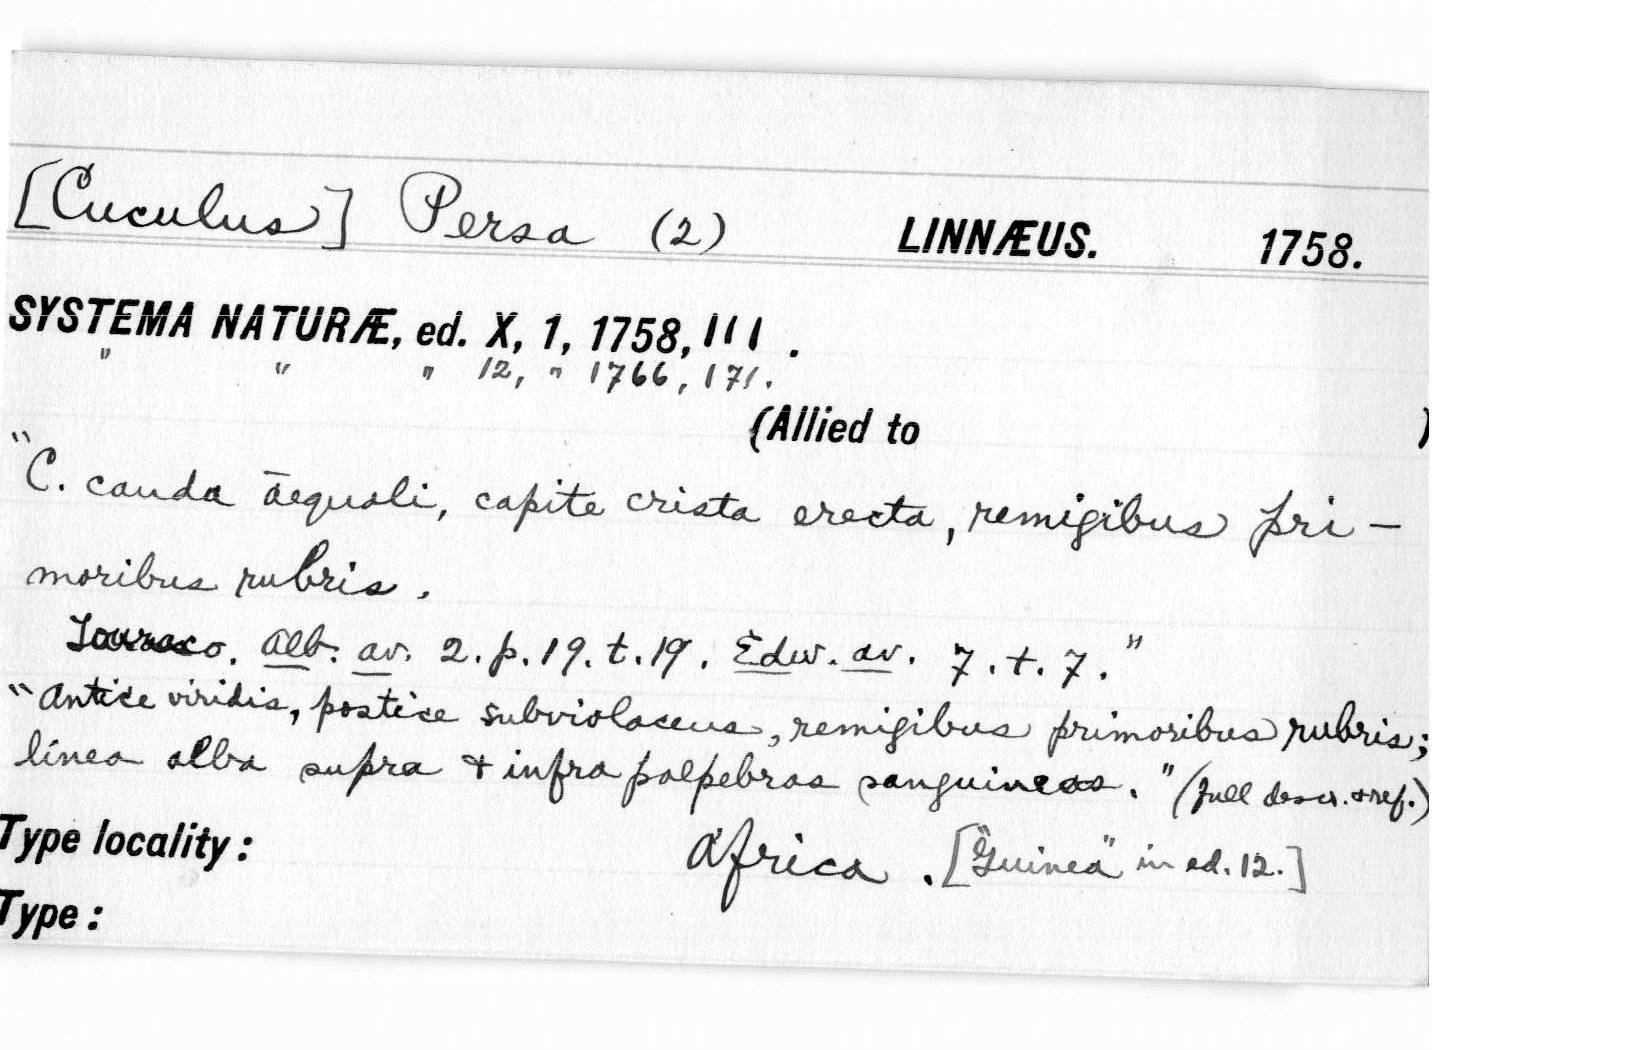 [Cuculus] Persa (2) LINNÆUS. 1758.
SYSTEMA NATURÆ, ed. X, 1, 1758, 111 .
" " " 12, " 1766, 171.
(Allied to )
"C. cauda æquali, capite crista erecta, remigibus pri-
moribus rubris.
Touraco. Alb. av. 2. p. 19. t. 19. Edw. av. 7. t. 7."
"Antice viridis, postice subviolaceus, remigibus primoribus rubris;
linea alba supra & infra palpebras sanguineas." (full descr. & ref.)
Type locality: Africa. ["Guinea" in ed. 12.]
Type: